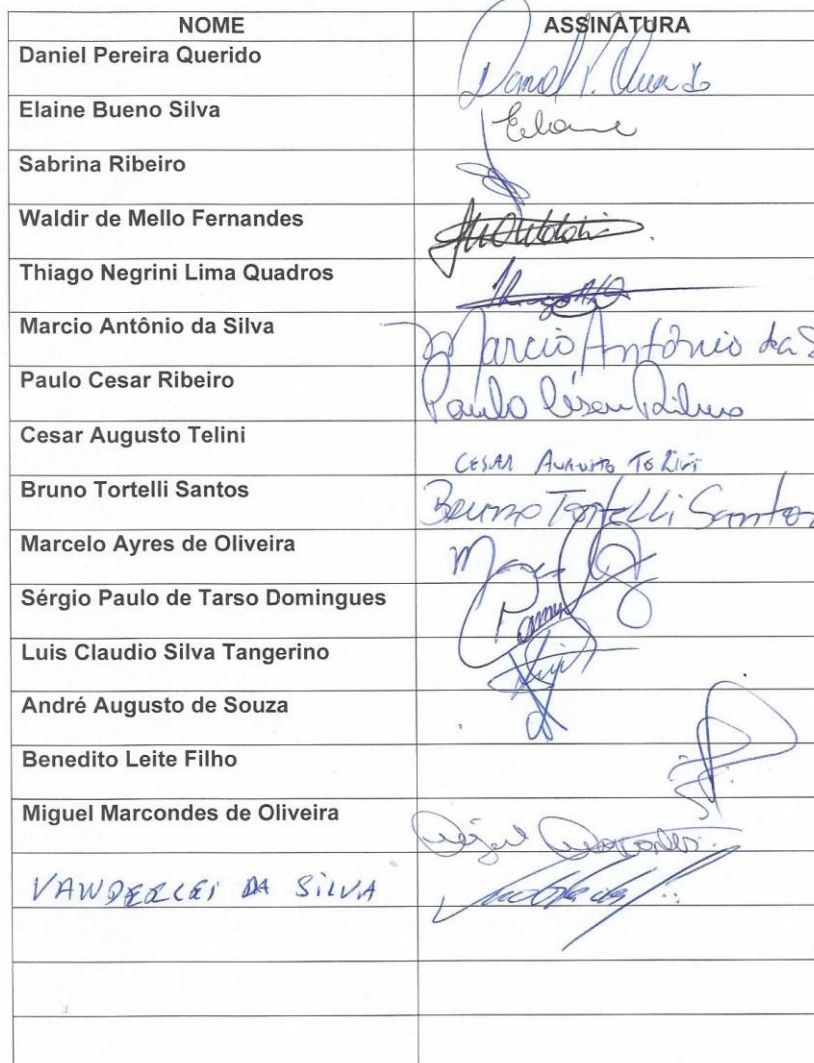 NOME ASSINATURA
Daniel Pereira Querido Daniel P.
Elaine Bueno Silva Elaine
Sabrina Ribeiro
Waldir de Mello Fernandes
Thiago Negrini Lima Quadros
Marcio Antônio da Silva Marcio Antônio da S
Paulo Cesar Ribeiro Paulo César Ribeiro
Cesar Augusto Telini CESAR AUGUSTO TELINI
Bruno Tortelli Santos Bruno Tortelli Santos
Marcelo Ayres de Oliveira
Sérgio Paulo de Tarso Domingues
Luis Claudio Silva Tangerino
André Augusto de Souza
Benedito Leite Filho
Miguel Marcondes de Oliveira Miguel Marcondes
VANDERLEI DA SILVA